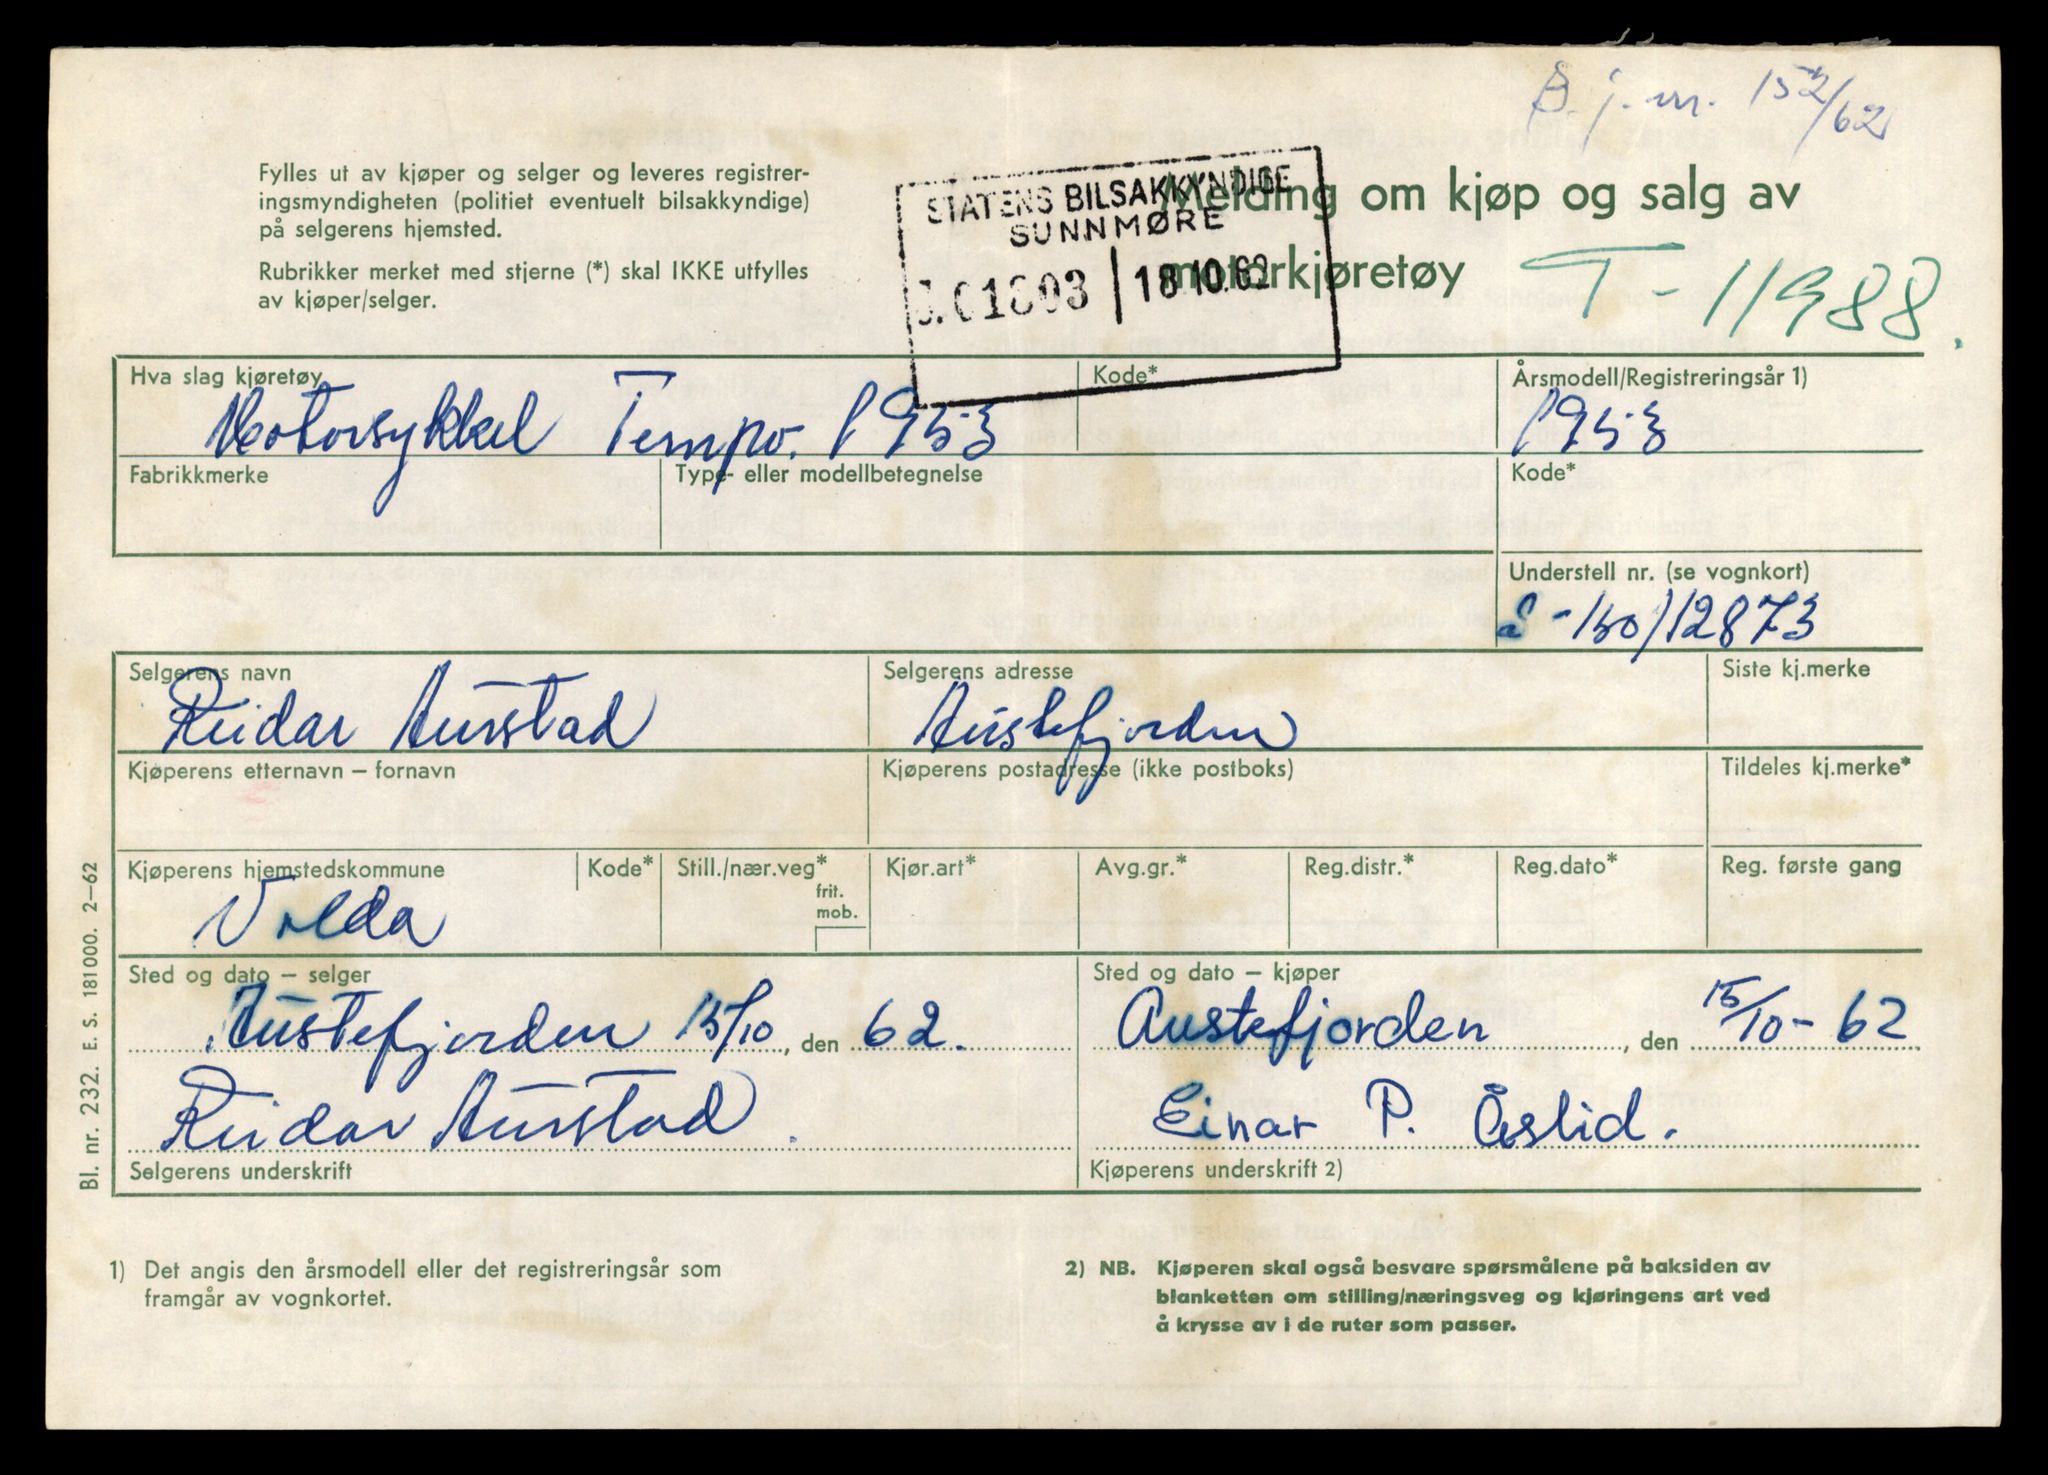 B. j. nr. 152/62
Fylles ut av kjøper og selger og leveres registrer-
ingsmyndigheten (politiet eventuelt bilsakkyndige)
på selgerens hjemsted.
Rubrikker merket med stjerne (*) skal IKKE utfylles
av kjøper/selger.
STATENS BILSAKKYNDIGE
SUNNMØRE
J. 01803 | 18 10.62
Melding om kjøp og salg av
motorkjøretøy
T-11988.
Hva slag kjøretøy Kode* Årsmodell/Registreringsår 1)
Motorsykkel Tempo. 1953 1953
Fabrikkmerke Type- eller modellbetegnelse Kode*
Understell nr. (se vognkort)
-150/12873
Selgerens navn Selgerens adresse Siste kj.merke
Reidar Aurstad Austefjorden
Kjøperens etternavn – fornavn Kjøperens postadresse (ikke postboks) Tildeles kj.merke*
Kjøperens hjemstedskommune Kode* Still./nær.veg* Kjør.art* Avg.gr.* Reg.distr.* Reg.dato* Reg. første gang
frit.
mob.
Volda
Sted og dato – selger Sted og dato – kjøper
Austefjorden 15/10, den 62. Austefjorden, den 15/10-62
Reidar Aurstad. Einar P. Åslid.
Selgerens underskrift Kjøperens underskrift 2)
Bl. nr. 232. E. S. 181000. 2–62
1) Det angis den årsmodell eller det registreringsår som
framgår av vognkortet.
2) NB. Kjøperen skal også besvare spørsmålene på baksiden av
blanketten om stilling/næringsveg og kjøringens art ved
å krysse av i de ruter som passer.